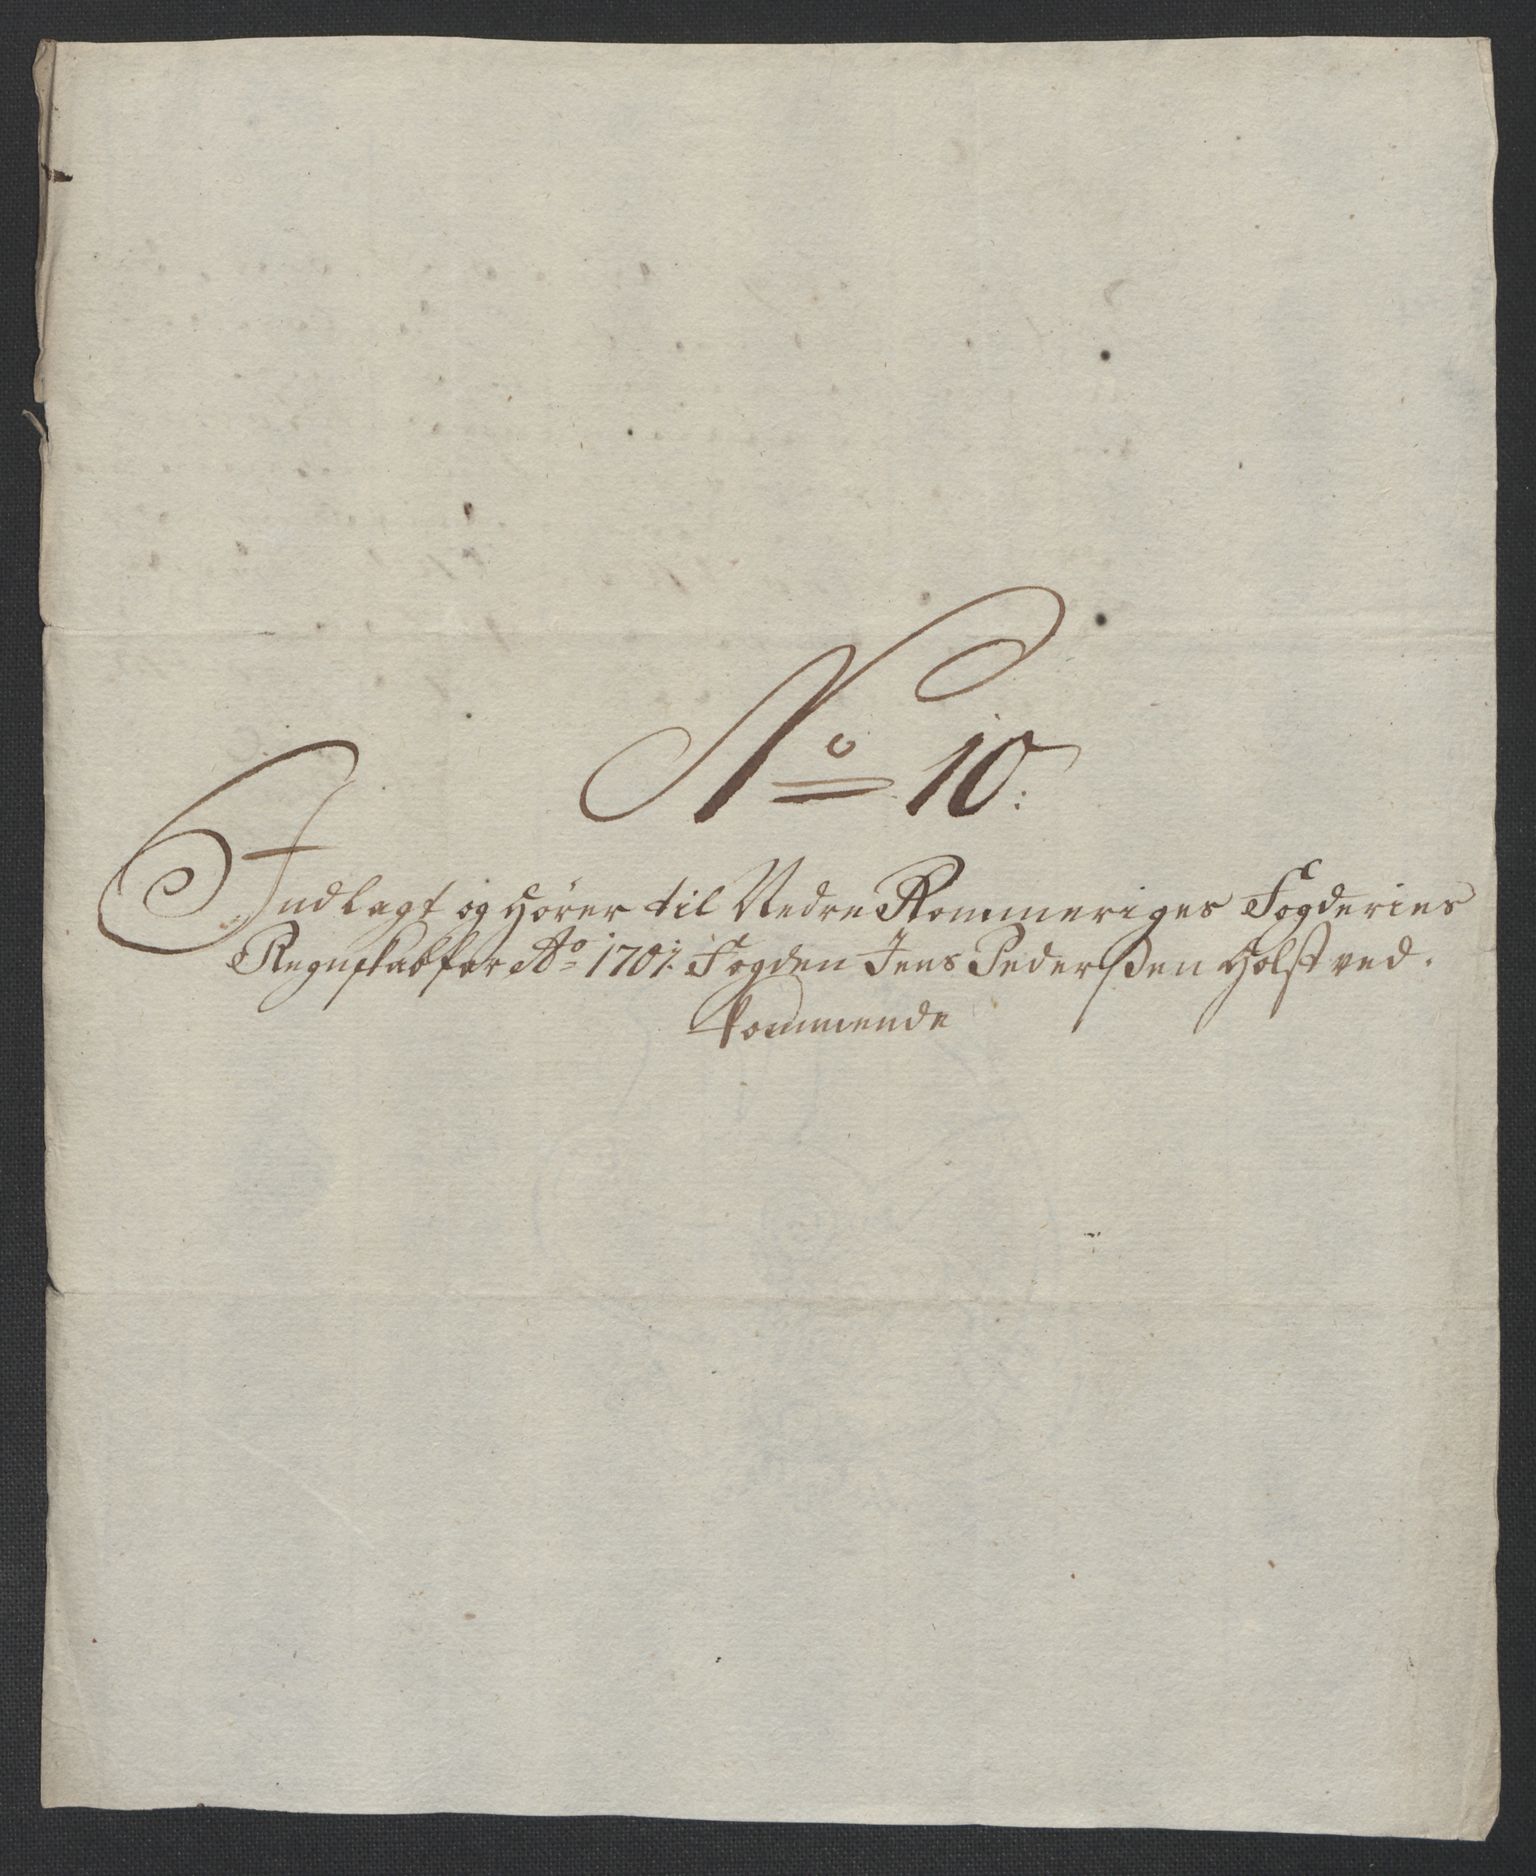 No 10:
Indlagt og hører til Nedre Rommeriges Fogderies
Regnskab for Ao 1701. Fogden Jens Pederßen Holst ved-
kommende